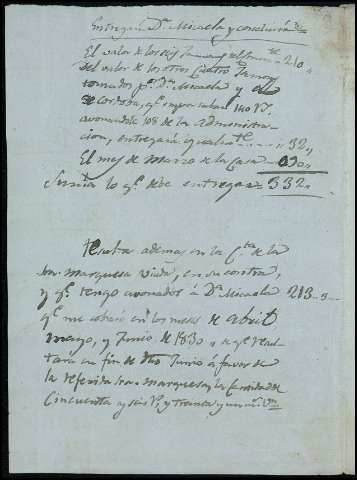 Entregará Dª Micaela y
El valor de los seis 210,,
Del valor de los otros cuatro
tomados pr. Dª Micaela y
de Cordova, qe. importaban 140
avonandole 108 de la Administra-
cion, entregará 32,,
El mes de Marzo de la Casa 090,,
Suma lo qe. debe entregar 332,,
Resulta ademas en la Cta. de la
Sra. Marquesa Viuda, en su contra,
y qe. tengo avonados á Dª Micaela 213
qe. me cobró en los meses de Abril
Mayo, y Junio de 1830
en fin de dho Junio á favor de
la referida Sra. Marquesa, la Cantidad de
Cincuenta y seis y treinta y un